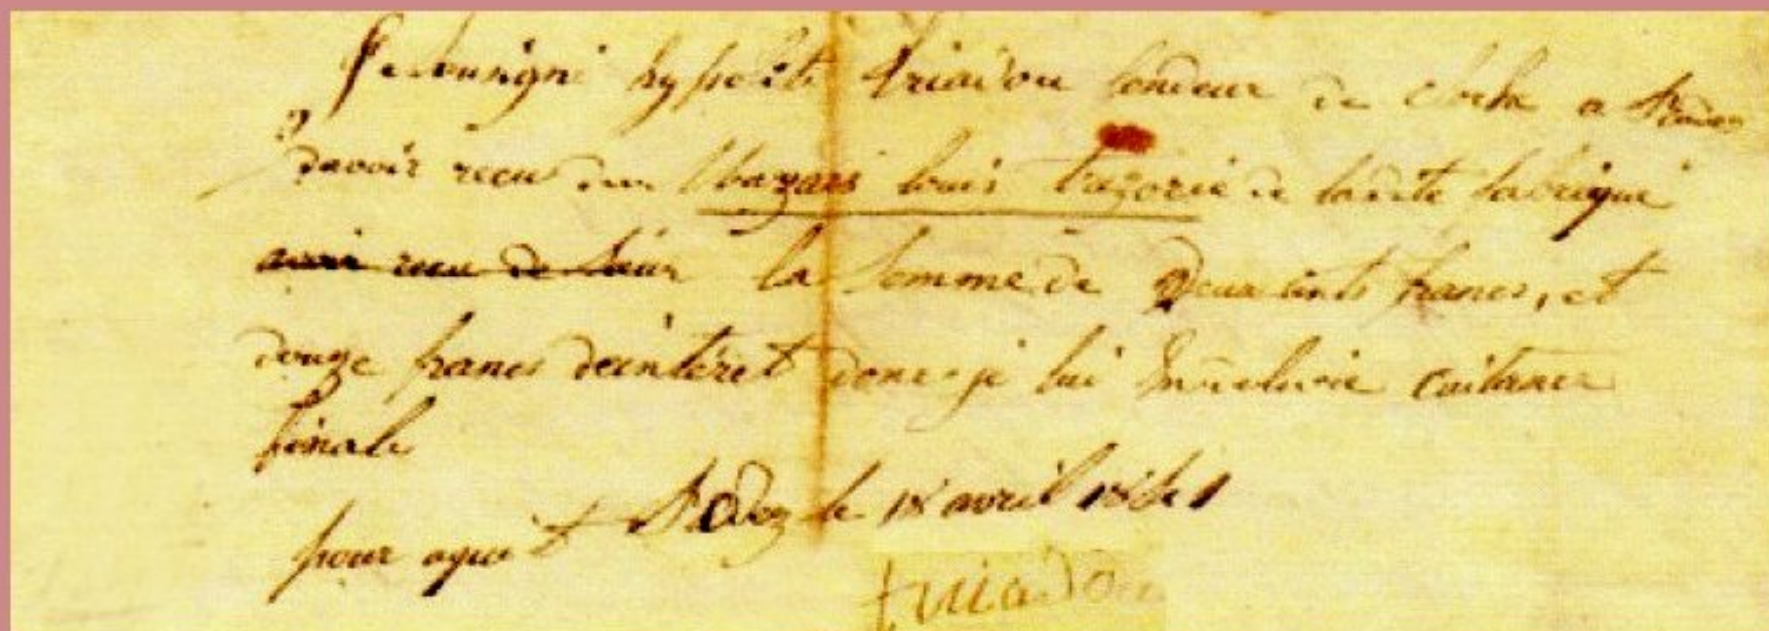 Je sousigné hypolite triadou fondeur de cloche a Rodez
davoir recu du Mazars louis trezorié de ladite fabrique
avoir recu de sieur la somme de Deux cents francs, et
douze francs deintéret donc je lui en delivre caitance
finale
Rodez le 18 avril 1841
pour aquit
triadou